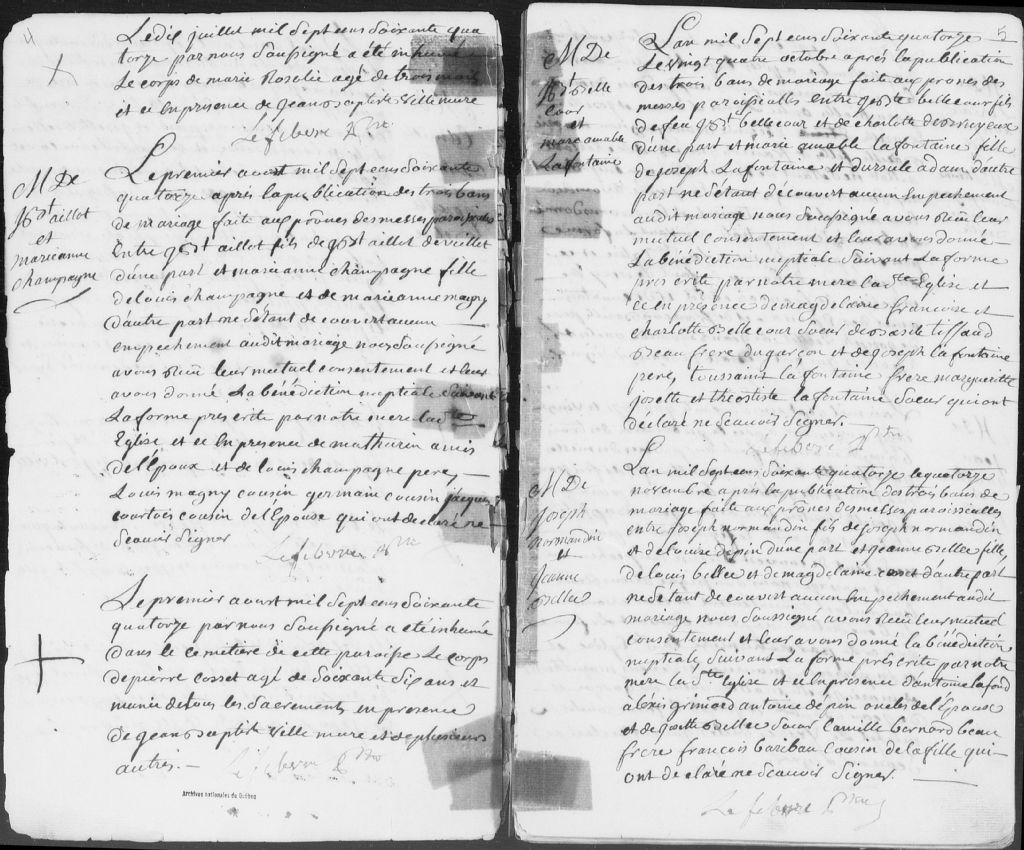 4
Le dix juillet mil sept cens soixante qua
torze par nous soussigné a été inhumé
Le corps de marie Rosalie agé de trois mois
et ce en presence de jean baptiste villemure
Lefebvre Ptre
M De
j b st aillot
et
marieanne
champagne
Le premier aoust mil sept cens soixante
quatorze après la publication des trois bans
de mariage faite aux prônes des messes paroissialles
Entre j b st aillot fils de j b st aillot
d'une part et marieanne champagne fille
de louis champagne et de marieanne magny
d'autre part ne s'étant decouvert aucun
empechement audit mariage nous soussigné
avons reçu leur mutuel consentement et leur
avons donné La bénédiction nuptiale suivant
La forme prescrite par notre mere la ste
Eglise et ce En presence de mathurin amis
de l'Epoux et de louis champagne pere,
Louis magny cousin germain cousin jacques
courtois cousin de l'Epouse qui ont declaré ne
sçavoir signer
Lefebvre Ptre
Le premier aoust mil sept cens soixante
quatorze par nous soussigné a eté inhumée
dans le cemetiere de cette paroisse Le corps
de pierre cosset agé de soixante six ans et
munie de tous les sacrements en presence
de jean baptist ville mure et de plusieurs
autres.
Lefebvre Ptre
Archives nationales du Québec
5
M De
belle
cour
et
marie amable
Lafontaine
L'an mil sept cens soixante quatorze
Le vingt quatre octobre après la publication
des trois bans de mariage fait aux prones des
messes paroissialles entre belle cour fils
de feu bellecour et de charlotte desruyeux
d'une part et marie amable lafontaine fille
de joseph Lafontaine et d'ursule adam d'autre
part ne s'étant découvert aucun Empechement
audit mariage nous soussigné avons reçu leur
mutuel consentement et leur avons donné
La bénédiction nuptiale suivant La forme
prescrite par notre mere la Ste Eglise et
ce en présence de magdelaine francoise et
charlotte Belle cour soeur de Basile tiffaud
Beau frere du garçon et de joseph la fontaine
pere, toussaint la fontaine frere margueritte
josette et théotiste la fontaine soeur qui ont
déclaré ne sçavoir signer.
Lefebvre Ptre
M De
joseph
normandin
et
jeanne
Bellee
L'an mil sept cens soixante quatorze le quatorze
novembre après la publication des trois bans de
mariage faite aux prônes des messes paroissialles
entre joseph normandin fils de joseph normandin
et de louise depin d'une part et jeanne Bellee fille
de louis bellee et de magdelaine cosset d'autre part
ne s'étant decouvert aucun Empechement audit
mariage nous soussigné avons reçu leur mutuel
consentement et leur avons donné la bénédiction
nuptiale suivant La forme préscrite par notre
mere la Ste Eglise et ce En presence d'antoine lafond
alexis grimard antoine depin oncles de l'Epoux
et de josette Bellee soeur camille bernard beau
frere françois baribau cousin de la fille qui
ont declaré ne sçavoir signer.
Lefebvre Ptre